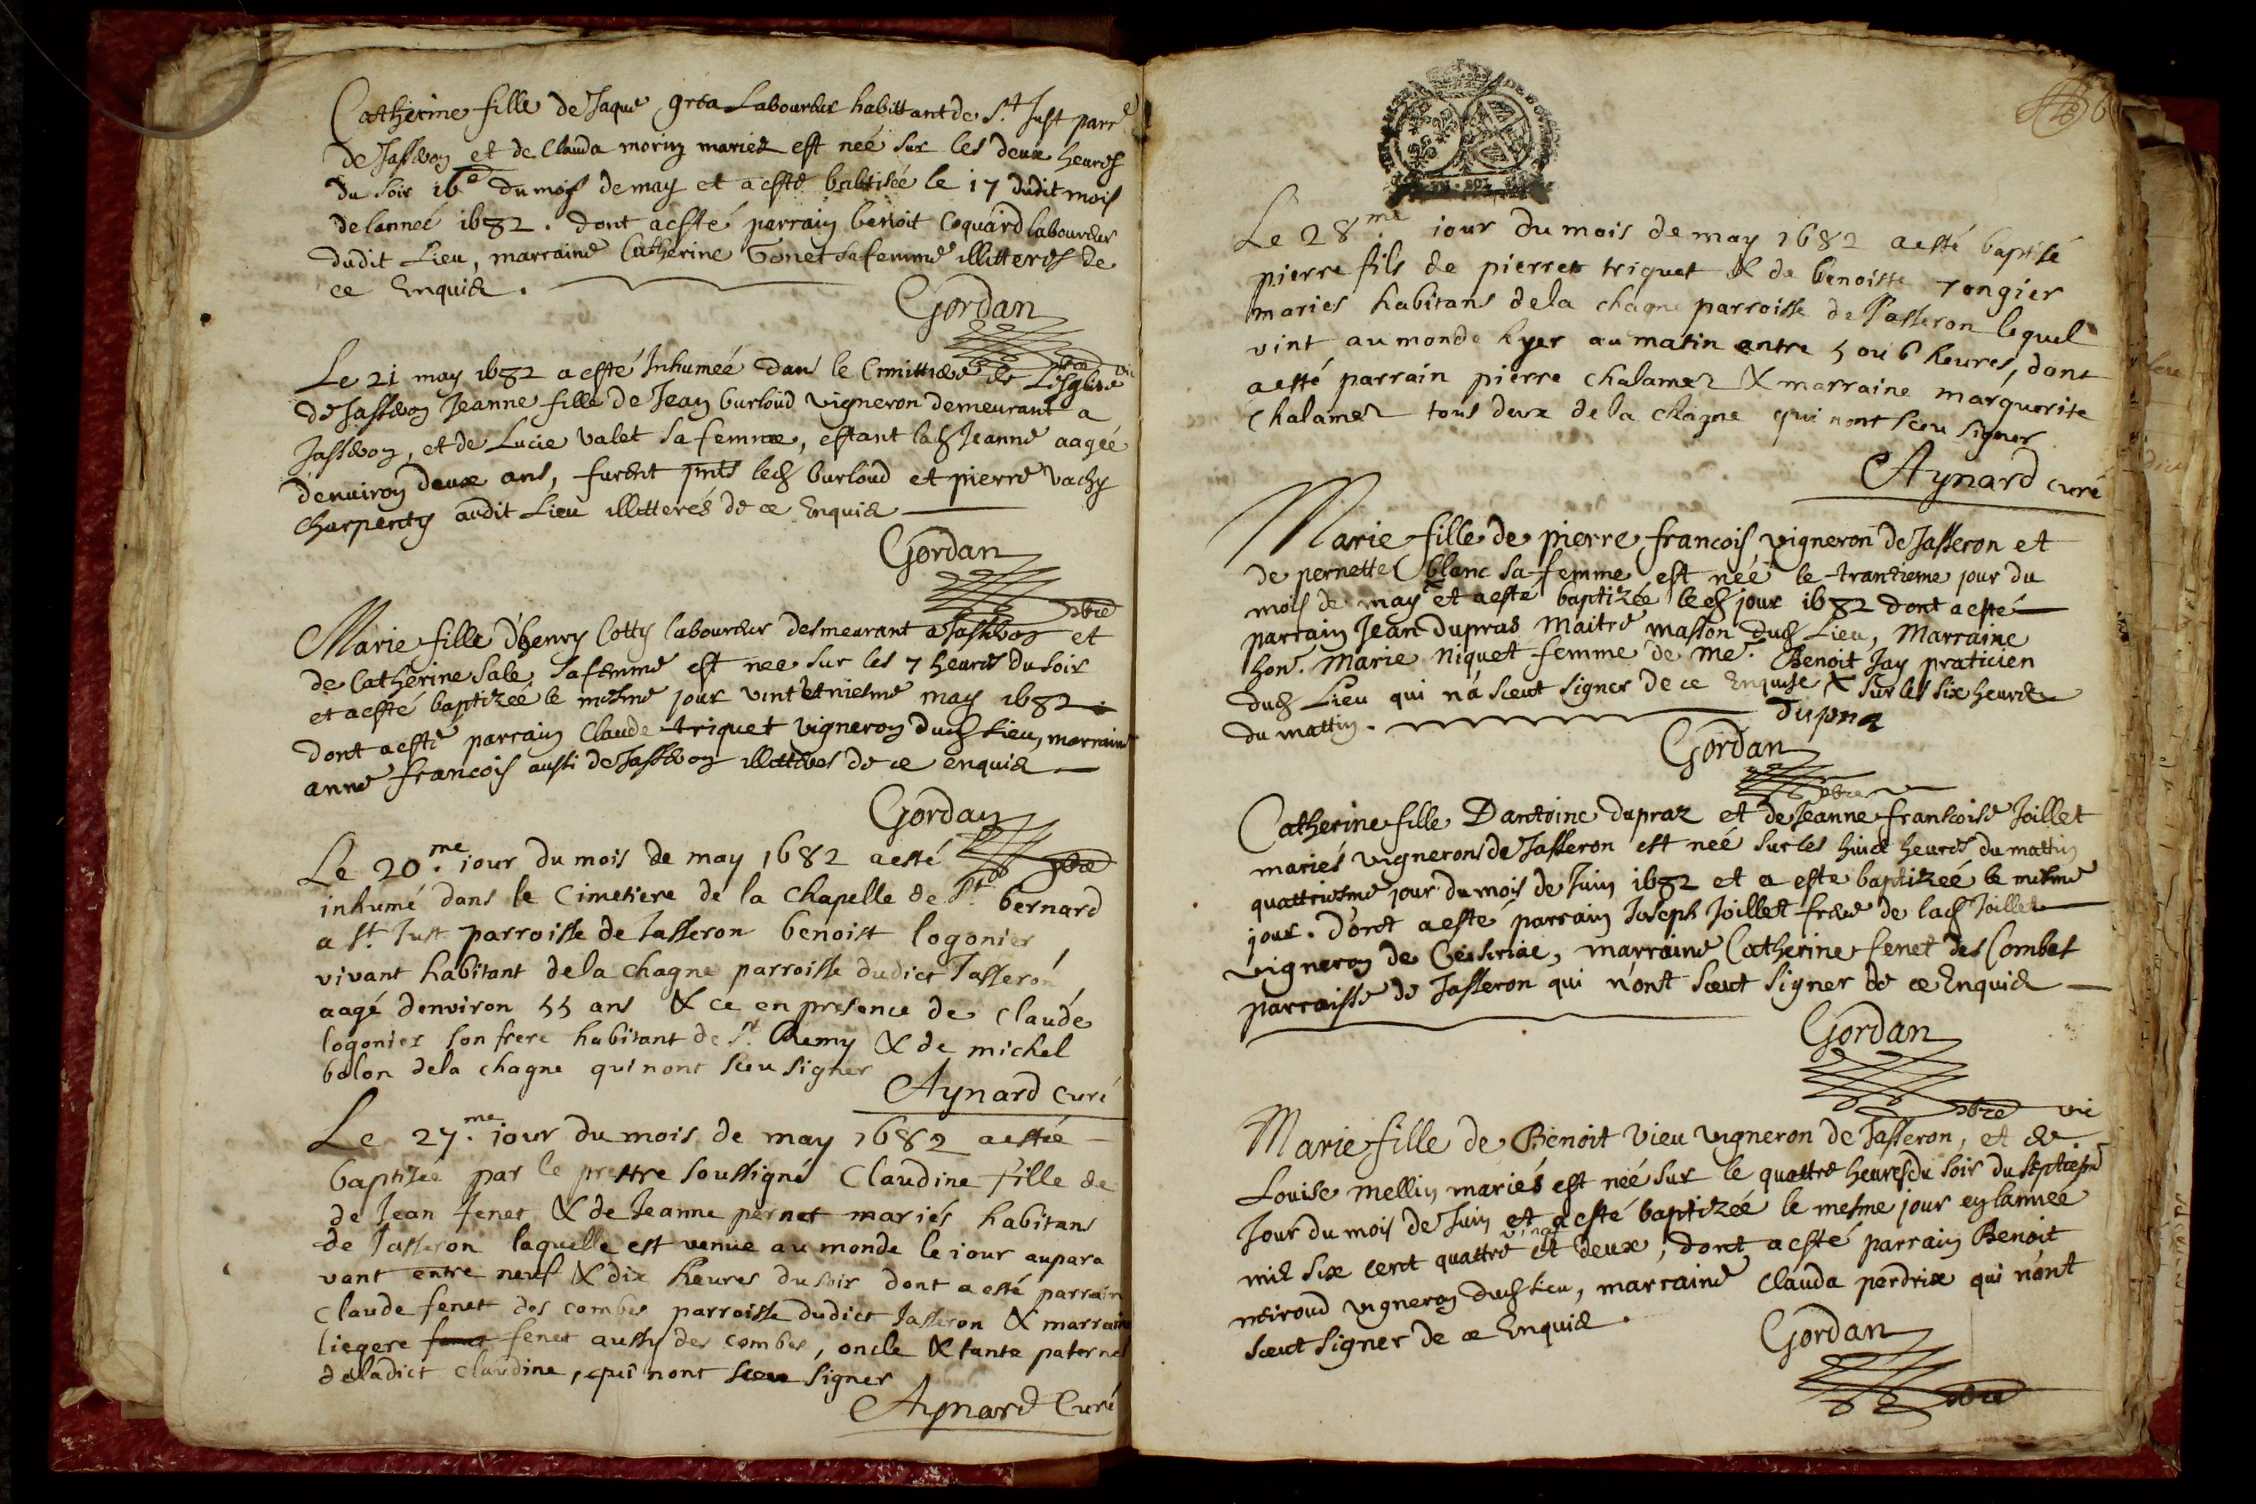 Catherine fille de Jaque greta Laboureur habittant de S.t Just parr.e
de Jasseron et de Clauda morin mariez est née sur les deux heures
du soir 16e du mois de may et a esté babtisée le 17 dudit mois
de lanneé 1682. dont a esté parrain benoit Coquard laboureur
dudit Lieu, marraine Catherine Gonet sa femme illitterés de
ce Enquis.
Gordan
ptre vic
Le 21 may 1682 a esté Inhumeé dans le Cimittiere de Lesglise
de Jasseron Jeanne fille de Jean burloud vigneron demeurant a
Jasseron, et de Lucie valet sa femme, estant lad Jeanne aageé
denviron deux ans, furent pnts led burloud et pierre vachy
charpentÿ audit Lieu illitterés de ce Enquis
Gordan
ptre
Marie fille d'henry Cotty laboureur desmeurant a Jasseron et
de Catherine Sale, sa femme est neé sur les 7 heures du soir
et a esté baptizeé le mesme jour vint et niesme may 1682.
dont a esté parrain Claude triquet vigneron dud Lieu, marraine
anne francois aussi de Jasseron illitteres de ce enquis
Gordan
ptre
Le 20.me iour du mois de may 1682 a esté
inhumé dans le Cimetiere de la Chapelle de St. bernard
a St. Just parroisse de Jasseron benoist logonier
vivant habitant de la chagne parroisse dudict Jasseron
aagé denviron 55 ans & ce en presence de claude
logonier son frere habitant de St. Remy & de michel
bolon dela chagne qui nont sceu signer
Aynard curé
Le 27.me iour du mois de may 1682 a esté
baptisée par le prestre soussigné Claudine fille de
de Jean fenet & de Jeanne pernet mariés habitans
de Jasseron laquelle est venue au monde le iour aupara
vant entre neuf & dix heures du soir dont a esté parrain
Claude fenet des combes parroisse dudict Jasseron & marraine
liegere fenet fenet aussy des combes, oncle & tante paternel
de ladict claudine, qui nont sceu signer
Aynard Curé
Le 28.me iour du mois de may 1682 a esté baptisé
pierre fils de pierre triquet & de benoiste rongier
mariés habitans dela chagne parroisse de Jasseron lequel
vint au monde hyer au matin entre 5 ou 6 heures, dont
a esté parrain pierre chalamel & marraine marguerite
Chalamel tous deux de la chagne qui nont sceu signer
Aynard curé
Marie fille de pierre francois vigneron de Jasseron et
de pernette blanc sa femme est neé le trantieme jour du
mois de may et a esté baptizée led jour 1682 dont a esté
parrain Jean dupras maitre masson dud Lieu, Marraine
hon. Marie Niquet femme de Me. Benoit Jay praticien
dud Lieu qui n'a sceut signer de ce Enquise & sur les six heures
du mattin. dupra
Gordan
ptre
Catherine fille Dantoine dupraz et de Jeanne francoise Joillet
mariés vignerons de Jasseron est neé sur les huict heures du mattin
quattriesme jour du mois de Juin 1682 et a esté baptizeé le mesme
jour. dont a esté parrain Joseph Joillet frere de lad Joillet
vigneron de Ceiseriac, marraine Catherine fenet des Combes
parraisse de Jasseron qui n'ont sceut signer de ce Enquis
Gordan
ptre vic
Marie fille de Benoit Vieu vigneron de Jasseron, et de
Louise mellin mariés est neé sur le quattre heures du soir du septiesme
Jour du mois de Juin et a esté baptizeé le mesme jour en lanneé
mil six cent quattre vingt et deux, dont a esté parrain Benoit
neiroud vigneron dud Lieu, marraine Clauda perdrix qui n'ont
sceut signer de ce Enquis.
Gordan
ptre